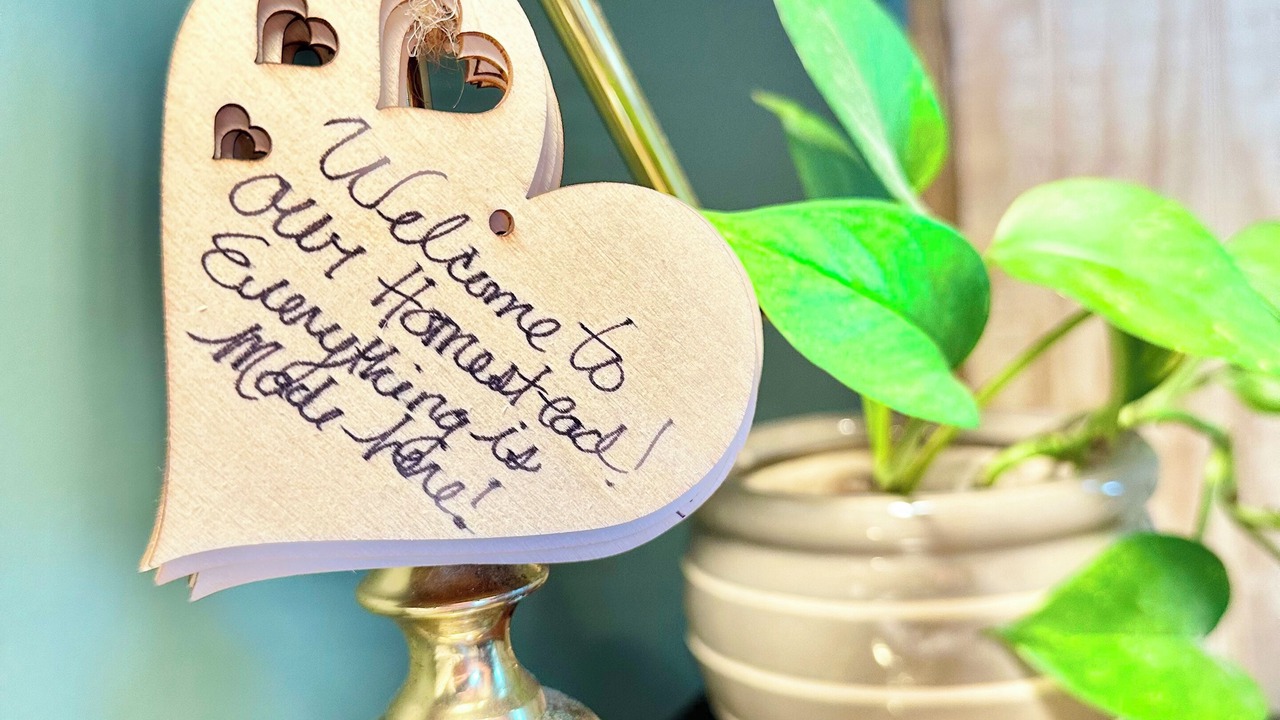 Welcome to
our Homestead!
Everything is
Made here!